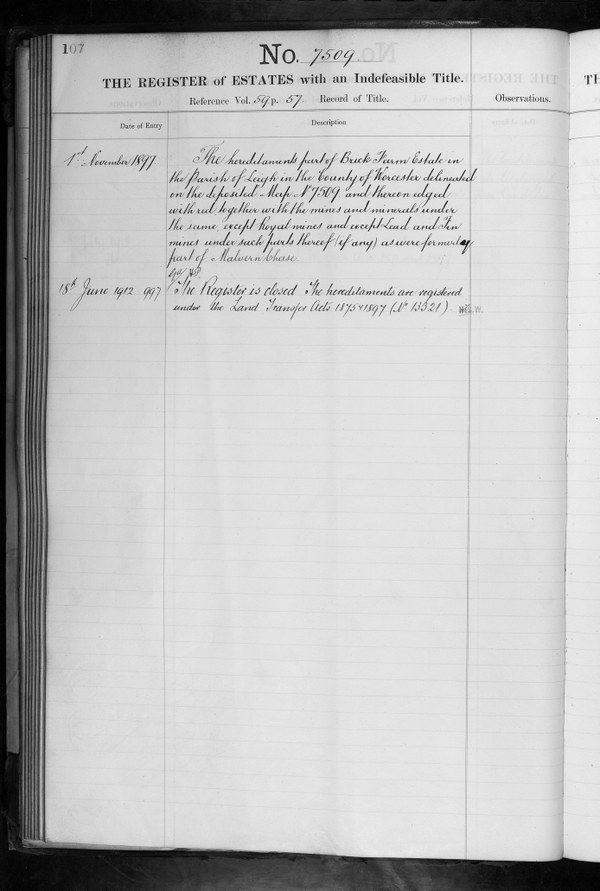 107
No. 7509.
THE REGISTER of ESTATES with an Indefeasible Title.
Reference Vol. 59 p. 57. Record of Title.
Observations.
Date of Entry
Description
1st November 1897
The hereditaments part of Brick Farm Estate in
the Parish of Leigh in the County of Worcester delineated
on the deposited Map No 7509 and thereon edged
with red together with the mines and minerals under
the same, except Royal mines and except Lead and Tin
mines under such parts thereof (if any) as were formerly
part of Malvern Chase
18th June 1912 997
The Register is closed The hereditaments are registered
under the Land Transfer Acts 1875 & 1897 (No 13321)
TH